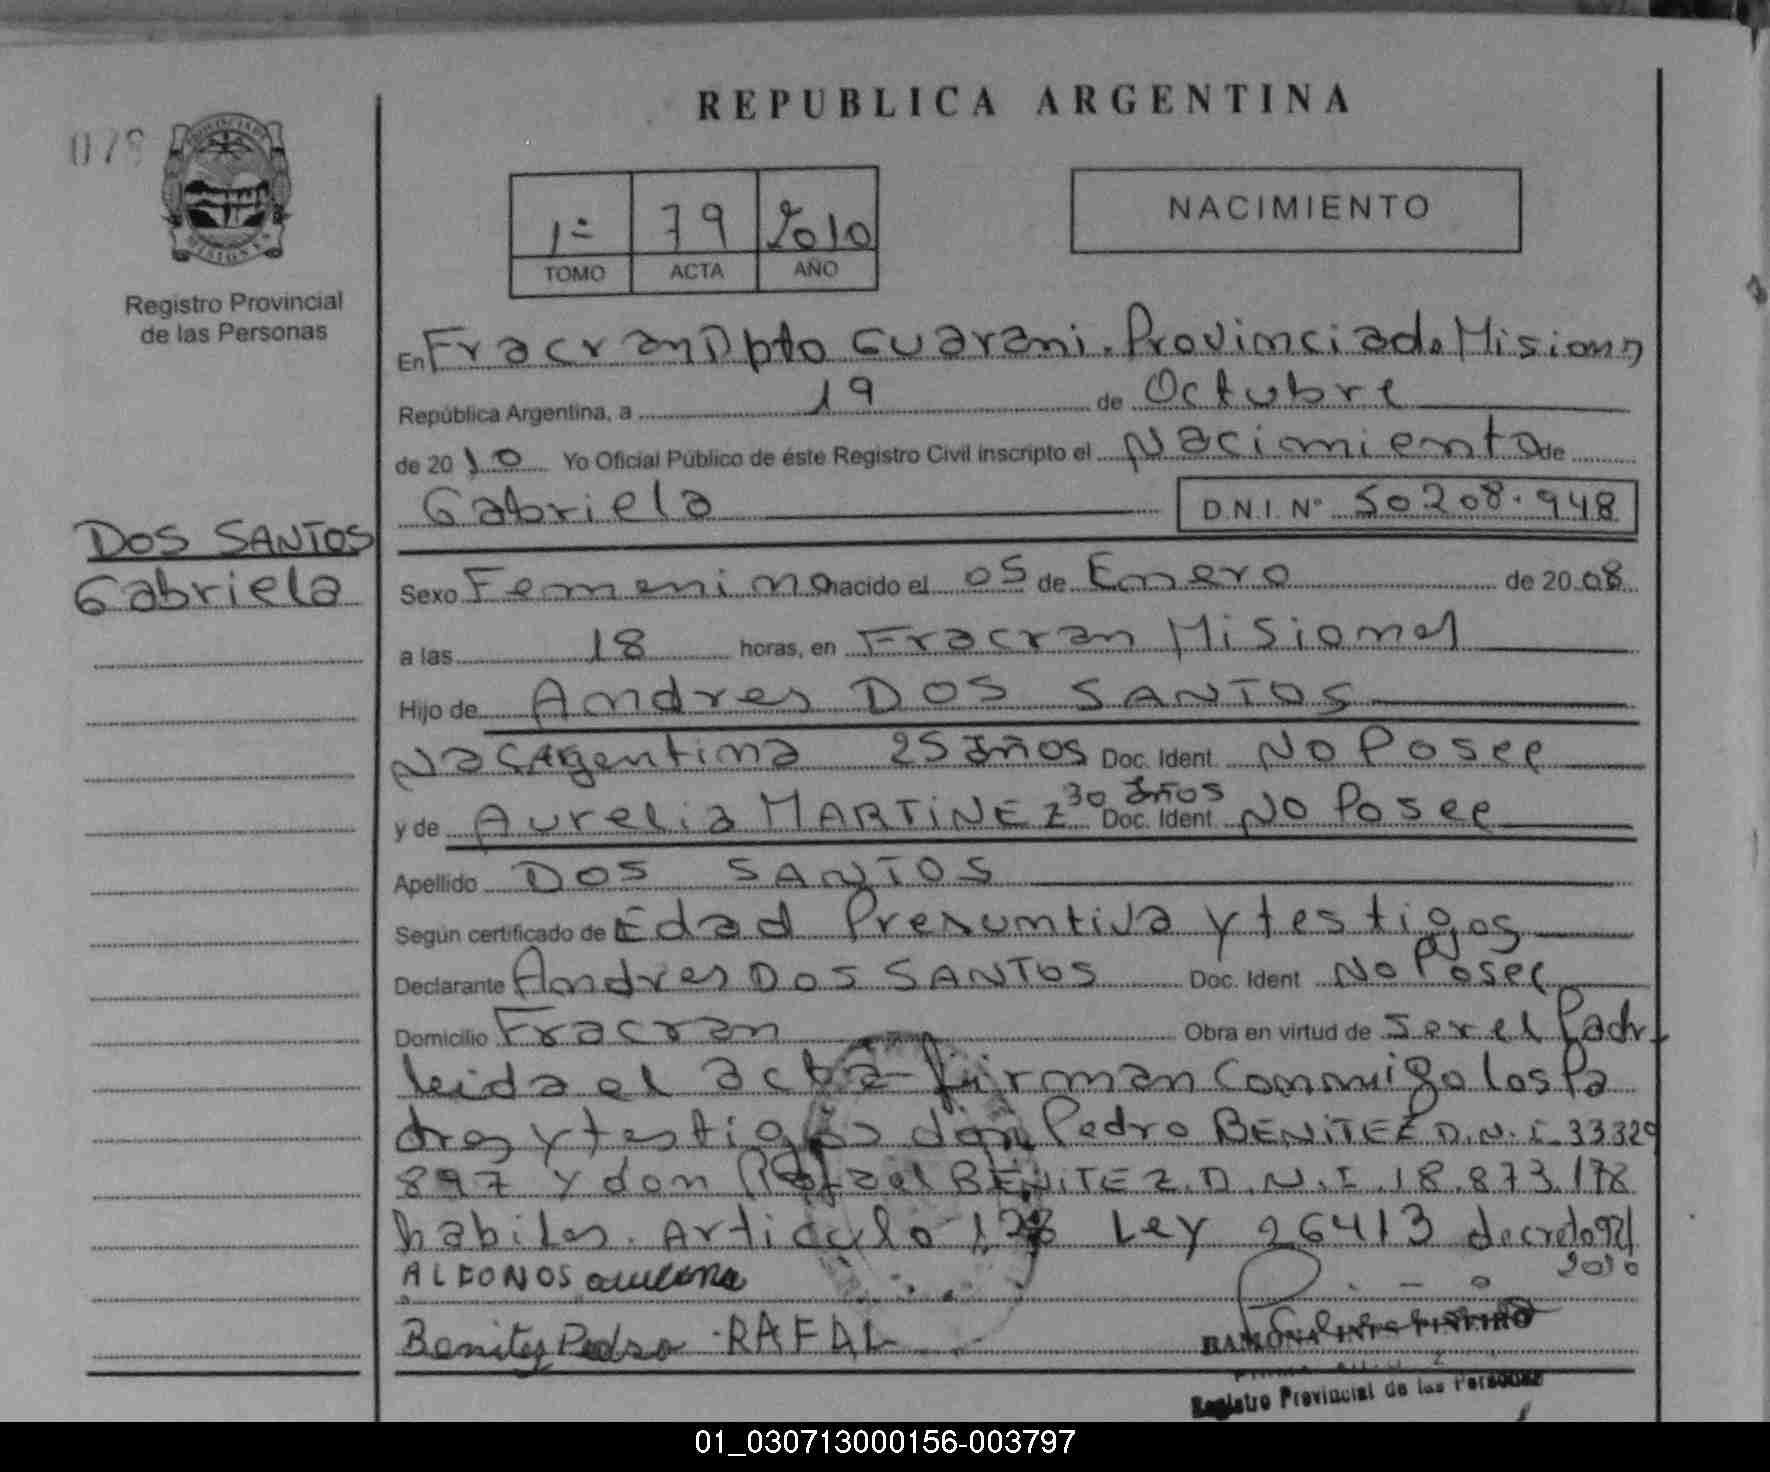 REPUBLICA ARGENTINA
079
PROVINCIA DE
MISIONES
Registro Provincial
de las Personas
1º 79 2010
TOMO ACTA AÑO
NACIMIENTO
En Fracran Dpto Guarani. Provincia de Misiones
República Argentina, a 19 de Octubre
de 2010 Yo Oficial Público de éste Registro Civil inscripto el Nacimiento de
Gabriela D.N.I. Nº 50208.948
DOS SANTOS
Gabriela
Sexo Femenino nacido el 05 de Enero de 2008
a las 18 horas, en Fracran Misiones
Hijo de Andres DOS SANTOS
Nac Argentina 25 años Doc. Ident No Posee
y de Aurelia MARTiNEZ 30 años Doc. Ident No Posee
Apellido DOS SANTOS
Según certificado de Edad Presuntiva y testigos
Declarante Andres DOS SANTOS Doc. Ident No Posee
Domicilio Fracran Obra en virtud de ser el Padre
leida el acta firman conmigo los Pa
dres y testigos don Pedro BENiTEZ D.N.I. 33329
897 y don Rafael BENiTEZ. D.N.I. 18.873.178
habiles. Articulo 128 Ley 26413 decreto 92/
2010
ALFONOS
Benitez Pedro RAFAL
RAMONA INES PIÑEIRO
Registro Provincial de las Personas
01_030713000156-003797